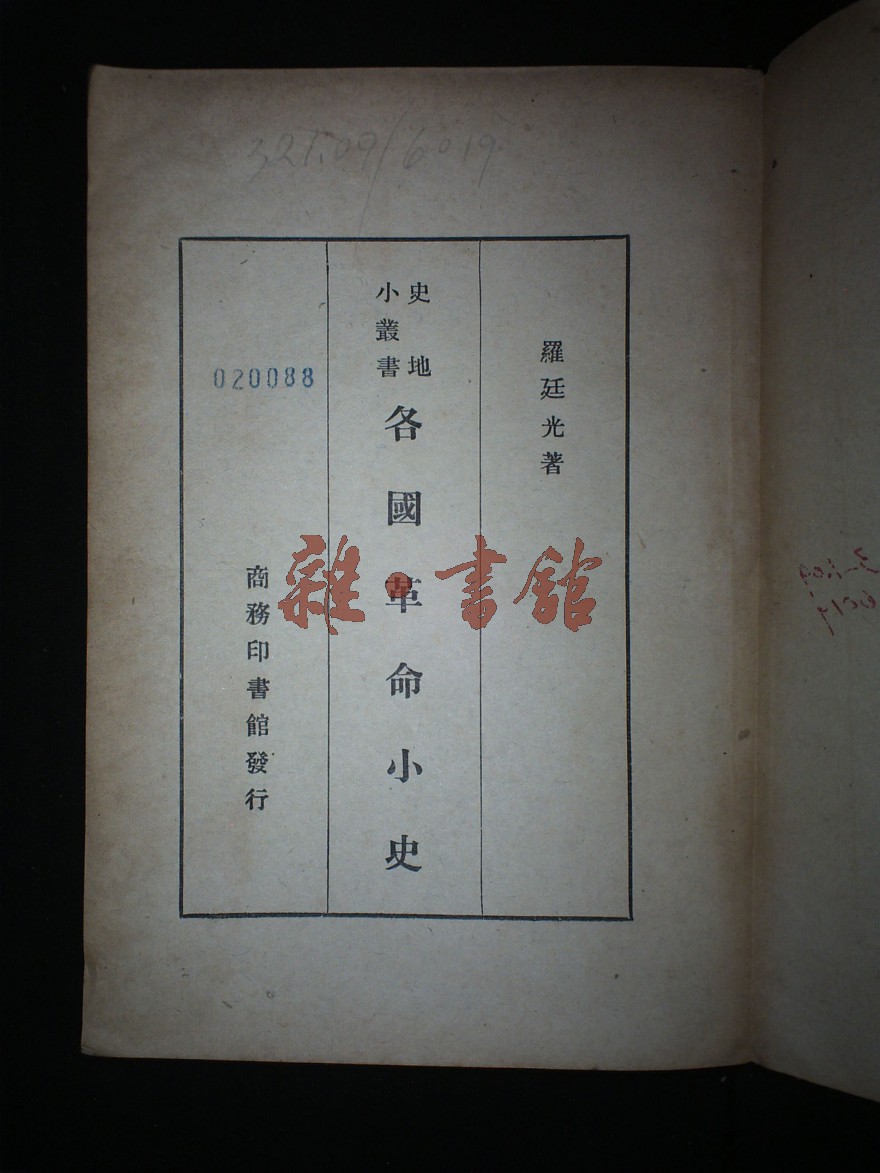 321.09/6019
羅廷光著
史地
小叢書
各國革命小史
020088
商務印書館發行
雜·書館